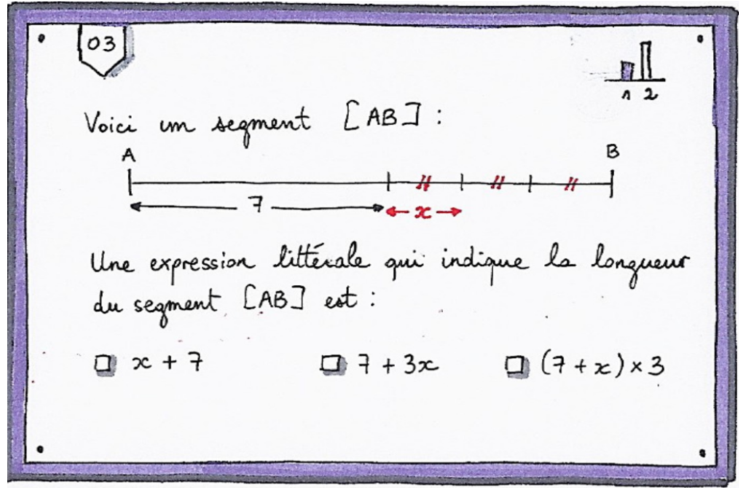 03
1 2
Voici un segment [AB] :
A B
7 x
Une expression littérale qui indique la longueur
du segment [AB] est :
x + 7 7 + 3x (7 + x) × 3